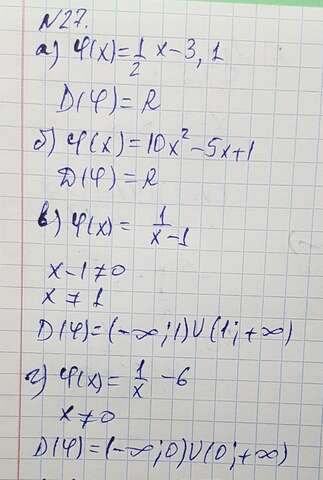 N27.
а) φ(x)=1/2 x-3,1
D(φ)=R
б) φ(x)=10x²-5x+1
D(φ)=R
в) φ(x)= 1/(x-1)
x-1≠0
x≠1
D(φ)=(-∞;1)U(1;+∞)
г) φ(x)= 1/x -6
x≠0
D(φ)=(-∞;0)U(0;+∞)